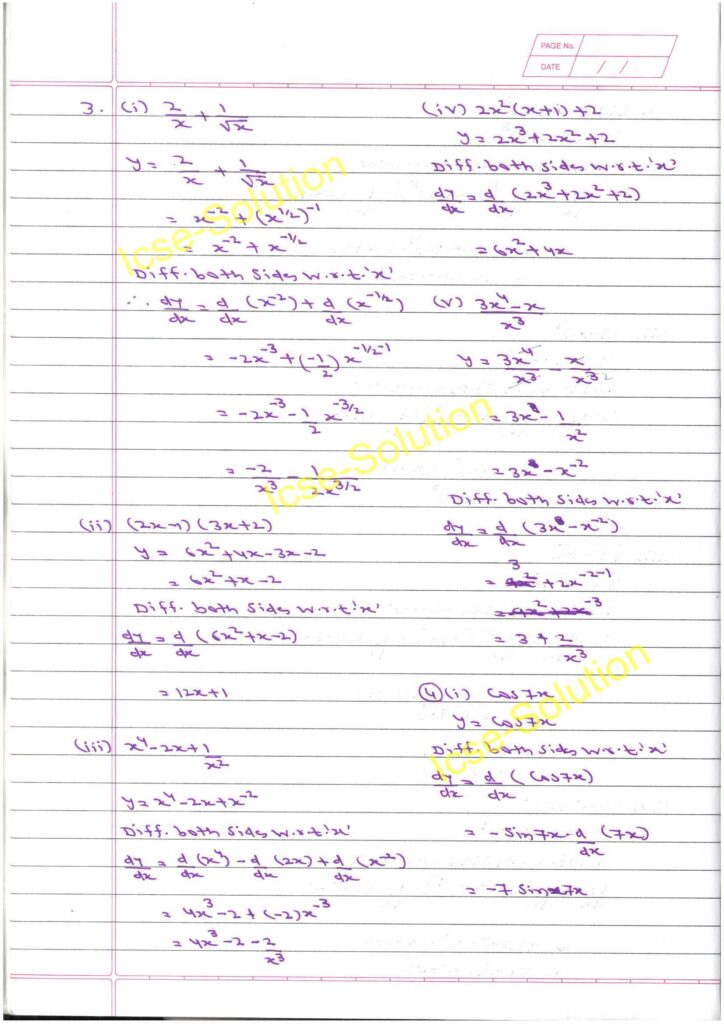 PAGE No.
DATE / /
3. (i) 2/x + 1/√x
y = 2/x + 1/√x
= x⁻² + (x^1/2)⁻¹
= x⁻² + x^-1/2
Diff. both sides w.r.t. 'x'
∴ dy/dx = d/dx (x⁻²) + d/dx (x^-1/2)
= -2x⁻³ + (-1/2) x^-1/2-1
= -2x⁻³ - 1/2 x^-3/2
= -2/x³ - 1/2x^3/2
(ii) (2x-1) (3x+2)
y = 6x² + 4x - 3x - 2
= 6x² + x - 2
Diff. both sides w.r.t. 'x'
dy/dx = d/dx (6x² + x - 2)
= 12x + 1
(iii) x⁴ - 2x + 1/x²
y = x⁴ - 2x + x⁻²
Diff. both sides w.r.t. 'x'
dy/dx = d/dx (x⁴) - d/dx (2x) + d/dx (x⁻²)
= 4x³ - 2 + (-2) x⁻³
= 4x³ - 2 - 2/x³
(iv) 2x² (x+1) + 2
y = 2x³ + 2x² + 2
Diff. both sides w.r.t. 'x'
dy/dx = d/dx (2x³ + 2x² + 2)
= 6x² + 4x
(v) 3x⁴ - x/x³
y = 3x⁴/x³ - x/x³ 2
= 3x - 1/x²
= 3x - x⁻²
Diff. both sides w.r.t. 'x'
dy/dx = d/dx (3x - x⁻²)
= 3 + 2x⁻²⁻¹
= 3 + 2/x³
4 (i) cos 7x
y = cos 7x
Diff. both sides w.r.t. 'x'
dy/dx = d/dx (cos 7x)
= - sin 7x · d/dx (7x)
= -7 sin 7x
Icse-Solution
Icse-Solution
Icse-Solution